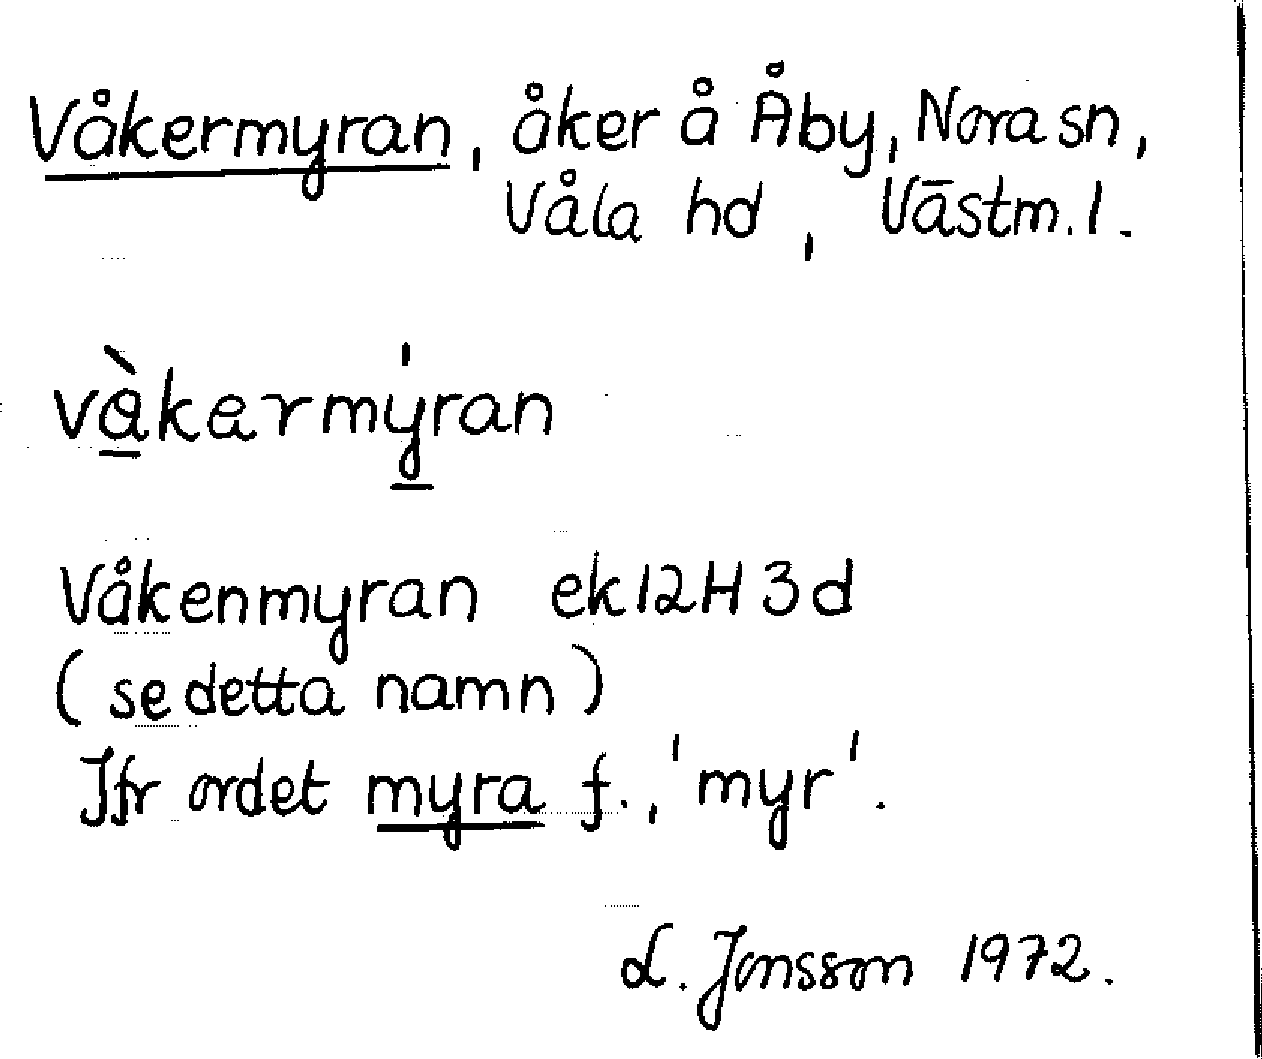 Våkermyran, åker å Åby, Nora sn,
Våla hd, Västm. l.
vàkermy̍ran
Våkenmyran ek 12H 3d
(se detta namn)
Jfr ordet myra f., 'myr'.
L. Jonsson 1972.